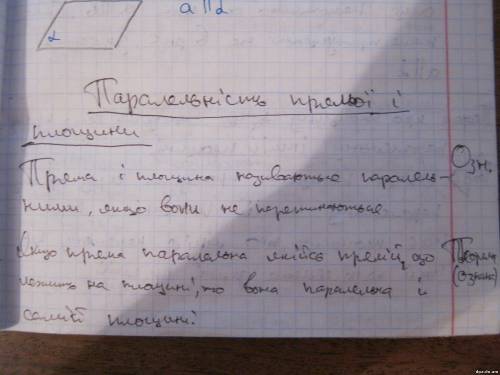 a || α
α
Паралельність прямої і
площини
Пряма і площина називаються паралель-
ними, якщо вони не перетинаються
Озн.
Якщо пряма паралельна якійсь прямій, що
лежить на площині, то вона паралельна й
самій площині.
Теорема
(Ознака)